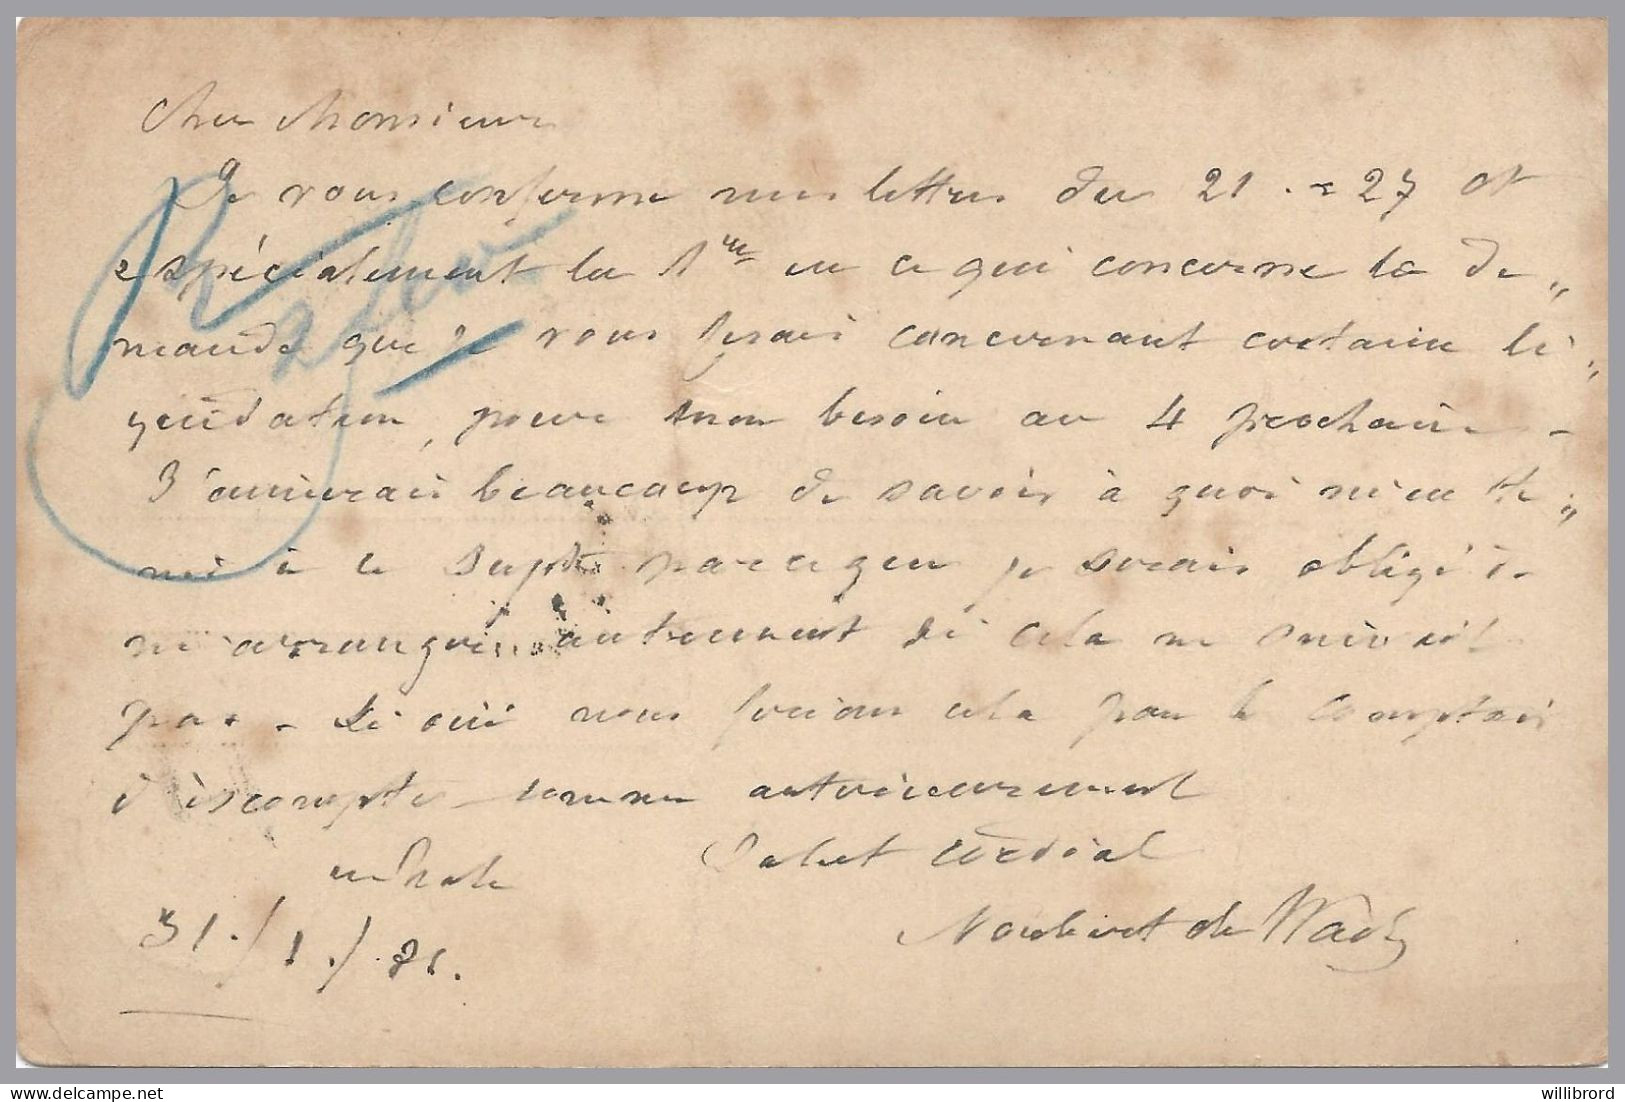 Cher Monsieur
Je vous confirme mes lettres du 21 . = 27 et
spécialement la 1re en ce qui concerne la de„
mande que je vous ferais concernant certaine li„
quidation, pour mon besoin au 4 prochain -
J'aimerais beaucoup de savoir à quoi m'en te„
nir à ce sujet parceque je serais obligé de
m'arranger autrement si cela ne suivait
pas - Si oui nous ferions cela par le Comptoir
d'escompte comme antérieurement
Salut cordial
31./1./81.
Norbert de
willibrord